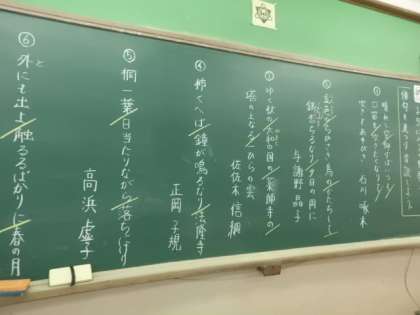 ① 晴れし空仰げばいつも
口笛を吹きたくなりて
吹きてあそびき 石川 啄木
② 金色のちひさき鳥のかたちして
銀杏ちるなり夕日の岡に
与謝野晶子
③ ゆく秋の大和の国の薬師寺の
塔の上なるひとひらの雲
佐佐木 信綱
④ 柿くへば鐘が鳴るなり法隆寺
正岡 子規
⑤ 桐一葉日当たりながら落ちにけり
高浜 虚子
と
⑥ 外にも出よ触るるばかりに春の月